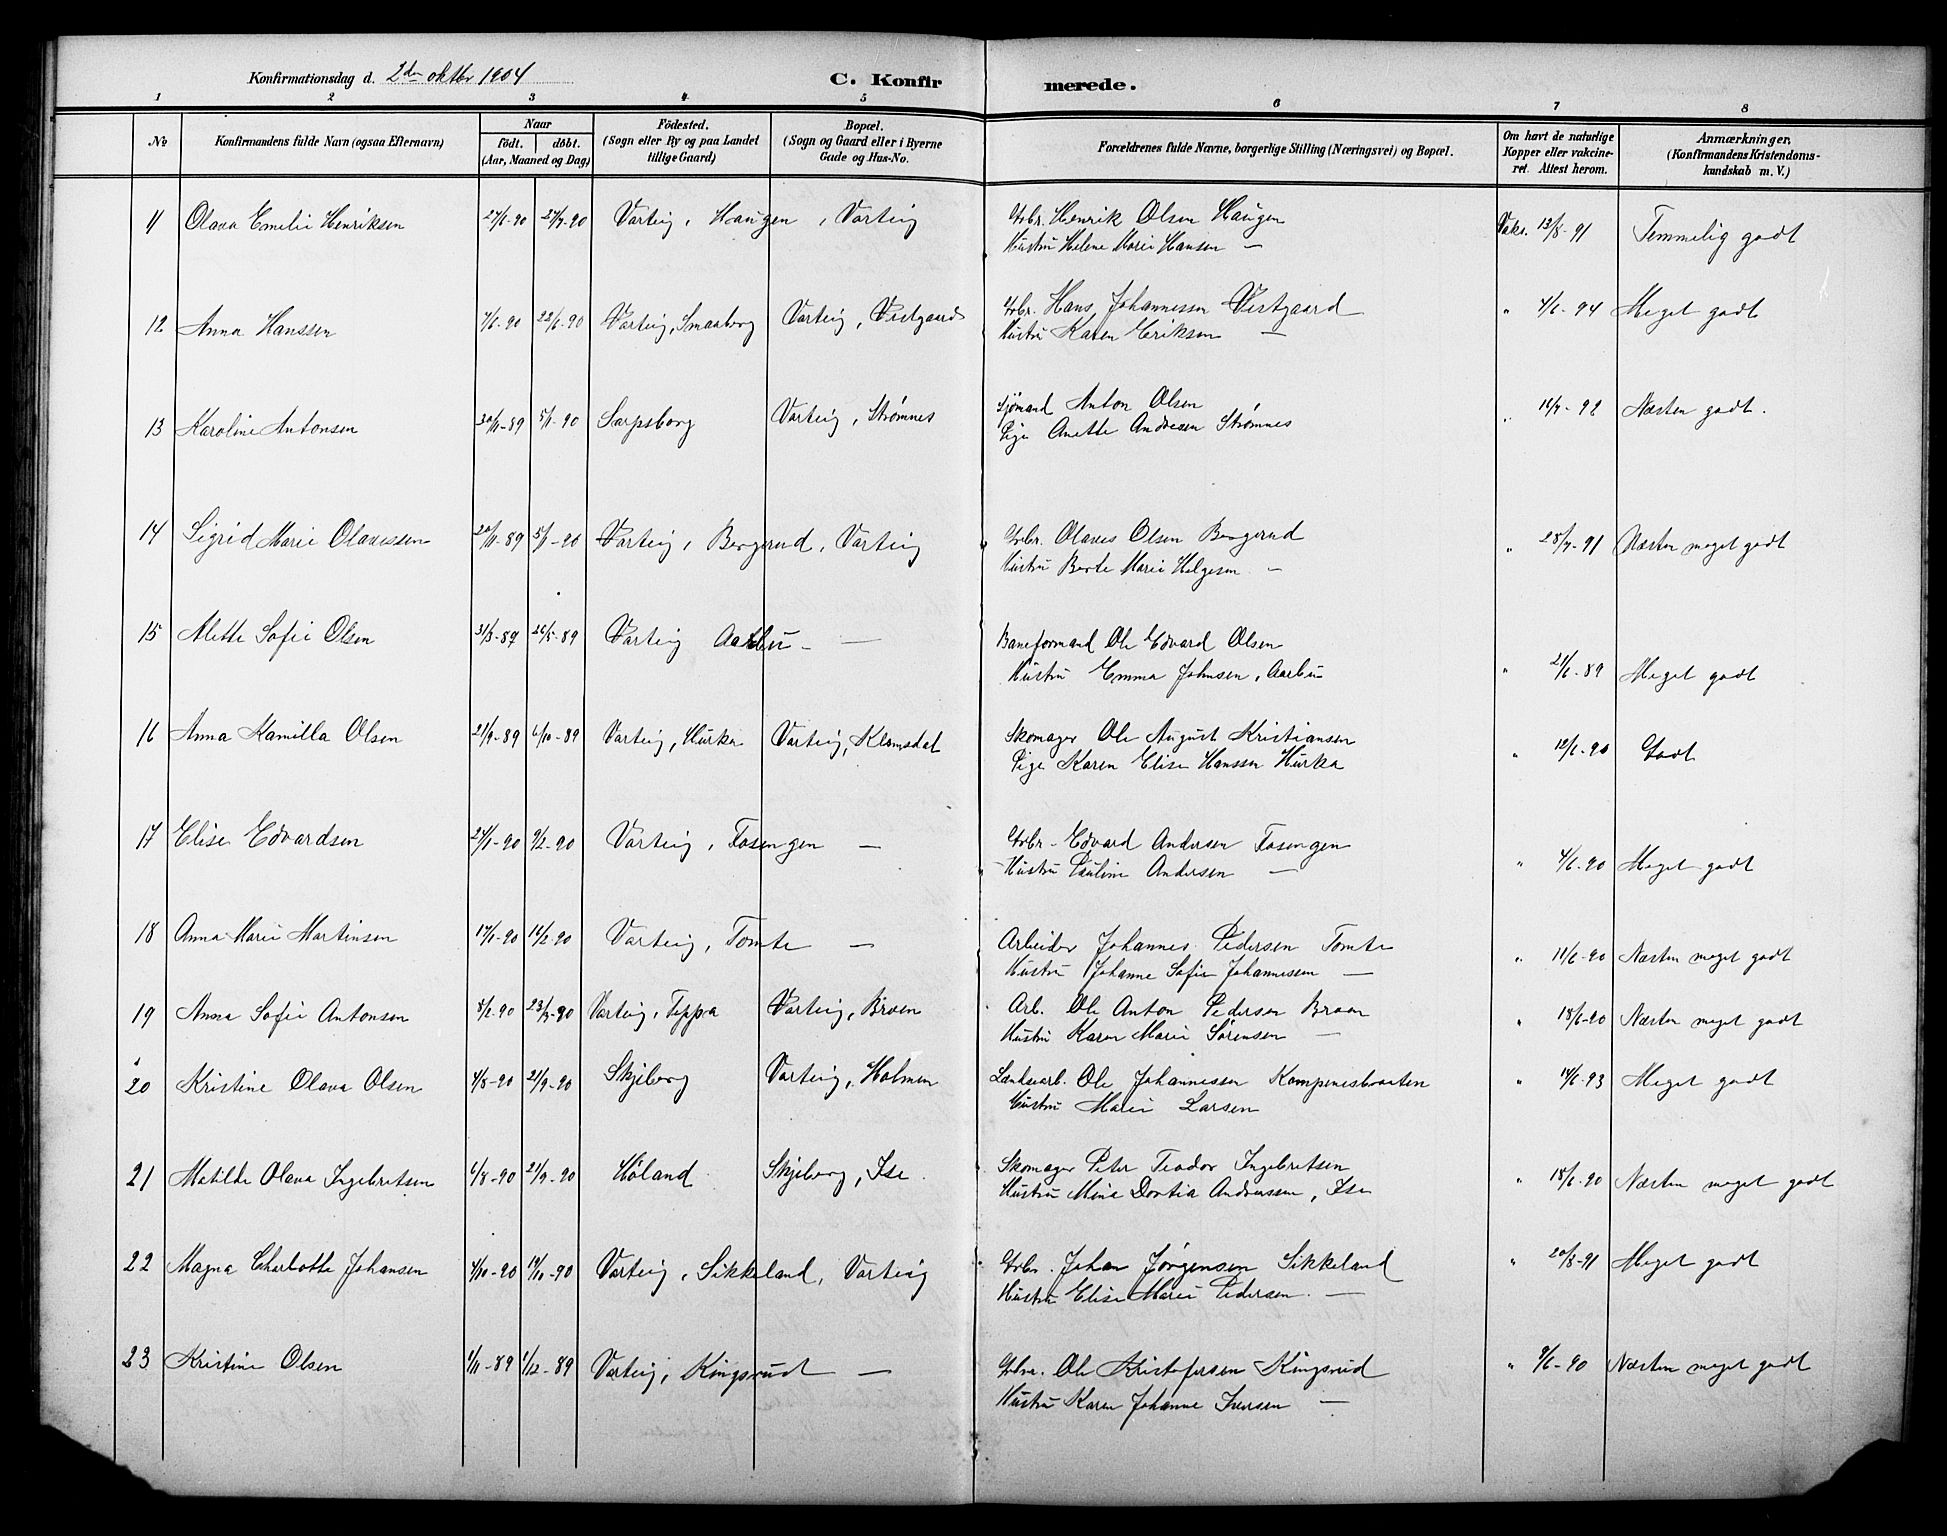 Konfirmationsdag d. 2den oktbr 1904 C. Konfirmerede.
1 2 3 4 5 6 7 8
No Konfirmandens fulde Navn (ogsaa Efternavn) Naar födt. döbt. (Aar, Maaned og Dag) Födested. (Sogn eller By og paa Landet tillige Gaard) Bopæl. (Sogn og Gaard eller i Byerne Gade og Hus-No. Forældrenes fulde Navne, borgerlige Stilling (Næringsvei) og Bopæl. Om havt de naturlige Kopper eller vakcineret. Attest herom. Anmærkninger. (Konfirmandens Kristendomskundskab m. V.)
11 Olava Emelie Henriksen 27/6-90 27/7-90 Varteig, Haugen, Varteig Gbr. Henrik Olsen Haugen Vaks. 13/8-91 Temmelig godt
Hustru Helene Marie Hansen —
12 Anna Hanssen 4/6-90 22/6-90 Varteig, Smaaborg Varteig, Vestgaard Gbr. Hans Johannessen Vestgaard " 4/6-94 Meget godt
Hustru Karen Eriksen —
13 Karoline Antonsen 30/11-89 5/1-90 Sarpsborg Varteig, Strømnes Sjømand Anton Olsen " 16/7-92 Næsten godt.
Pige Anette Andresen Strømnes
14 Sigrid Marie Olavessen 20/11-89 5/1-90 Varteig, Bergerud, Varteig Gbr. Olaves Olsen Bergerud " 28/7-91 Næsten meget godt
Hustru Berte Marie Helgesen —
15 Alette Sofie Olsen 31/3-89 26/5-89 Varteig Aarbu — Baneformand Ole Edvard Olsen
Hustru Emma Johnsen, Aarbu " 21/6-89 Meget godt
16 Anna Kamilla Olsen 21/9-89 6/10-89 Varteig, Hurka Varteig, Klomsdal Skomager Ole August Kristiansen " 12/6-90 Godt
Pige Karen Elise Hanssen Hurka
17 Elise Edvardsen 27/1-90 9/2-90 Varteig, Fosengen — Gbr. Edvard Andersen Fosengen " 4/6-90 Meget godt
Hustru Pauline Andersen —
18 Anna Marie Martinsen 17/1-90 16/2-90 Varteig, Tomte — Arbeider Johannes Pedersen Tomte " 11/6-90 Næsten meget godt
Hustru Johanne Sofie Johannessen —
19 Anna Sofie Antonsen 8/2-90 23/3-90 Varteig, Teppa Varteig, Broen Arb. Ole Anton Pedersen Broen " 18/6-90 Næsten meget godt
Hustru Karen Marie Sørensen —
20 Kristine Olava Olsen 4/8-90 21/9-90 Skjeberg Varteig, Holmen Landarb. Ole Johannessen Kampenesbraaten " 14/6-93 Meget godt
Hustru Marie Larsen
21 Matilde Olava Ingebretsen 6/8-90 21/9-90 Høland Skjeberg, Ise. Skomager Peter Teodor Ingebretsen " 18/6-90 Næsten meget godt
Hustru Mina Dortia Andreassen, Ise
22 Magna Charlotte Johansen 4/10-90 19/10-90 Varteig, Sikkeland, Varteig Gbr. Johan Jørgensen Sikkeland " 20/8-91 Meget godt
Hustru Elise Marie Pedersen. —
23 Kristine Olsen 1/11-89 1/12-89 Varteig, Kingsrud — Gbr. Ole Kristofersen Kingsrud " 9/6-90 Næsten meget godt
Hustru Karen Johanne Iversen —